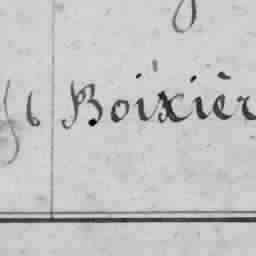 6 Boixièr